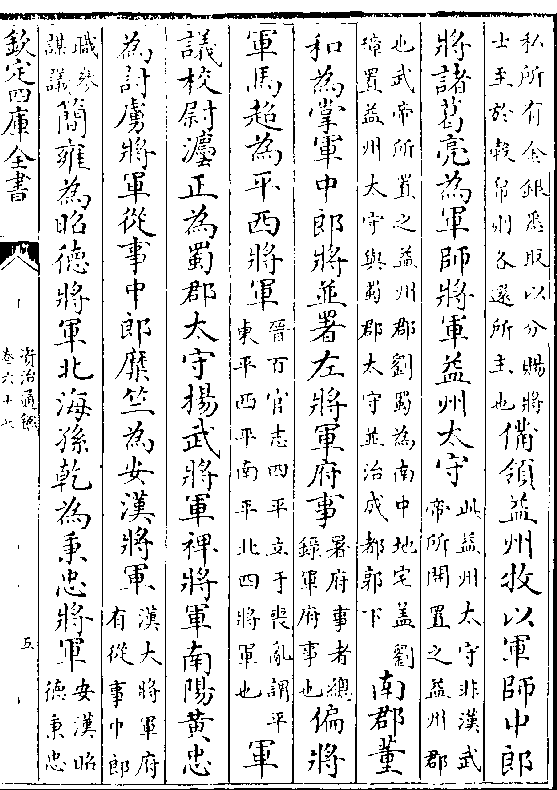 私所有金銀悉取以分賜將
士至於穀帛則各還所主也
備領益州牧以軍師中郎
將諸葛亮為軍師將軍益州太守
此益州太守非漢武
帝所開置之益州郡
也武帝所置之益州郡劉蜀為南中地宅盖劉
璋置益州太守與蜀郡太守並治成都郭下
南郡董
和為掌軍中郎將並署左將軍府事
署府事者總
錄軍府事也
偏將
軍馬超為平西將軍
晉百官志四平立于喪亂謂平
東平西平南平北四將軍也
軍
議校尉灋正為蜀郡太守揚武將軍裨將軍南陽黃忠
為討虜將軍從事中郎糜竺為安漢將軍
漢大將軍府
有從事中郎
職參
謀議
簡雍為昭德將軍北海孫乾為秉忠將軍
安漢昭
德秉忠
欽定四庫全書
資治通鑑
卷六十七
五